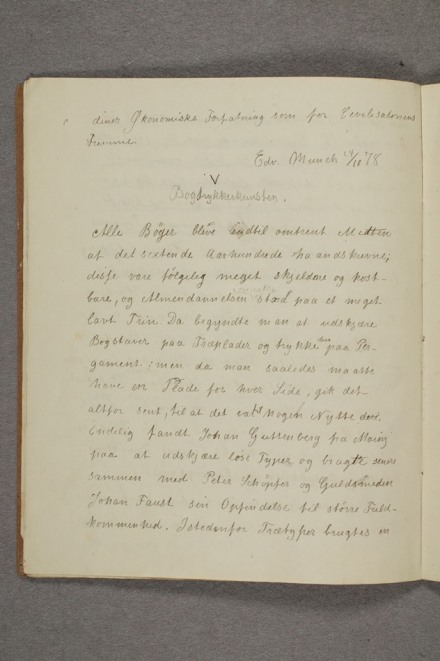 dines Økonomiske Forfatning som for Sevelesalonens
Fremme.
Edv. Munch 14/10 78
V
Bogtrykkerkunsten.
Alle Bøger bleve indtil omtrent Midten
af det sextende Aarhundrede haandskrevne;
disse vare følgelig meget skjeldne og kost-
bare, og Almendannelsen stod paa et meget
lavt Trin. Da begyndte man at udskjære
Bogstaver paa Træplader og trykke dem paa Per-
gament; men da man saaledes maatte
have en Plade for hver Side, gik det
altfor sent, til at det var nogen Nytte deri.
Endelig fandt Johan Guttenberg fra Mainz
paa at udskjære løse Typer og bragte senere
sammen med Peter Schöpfer og Guldsmeden
Johan Faust sin Opfindelse til større Fuld-
kommenhed. Istedenfor Trætyper brugtes en